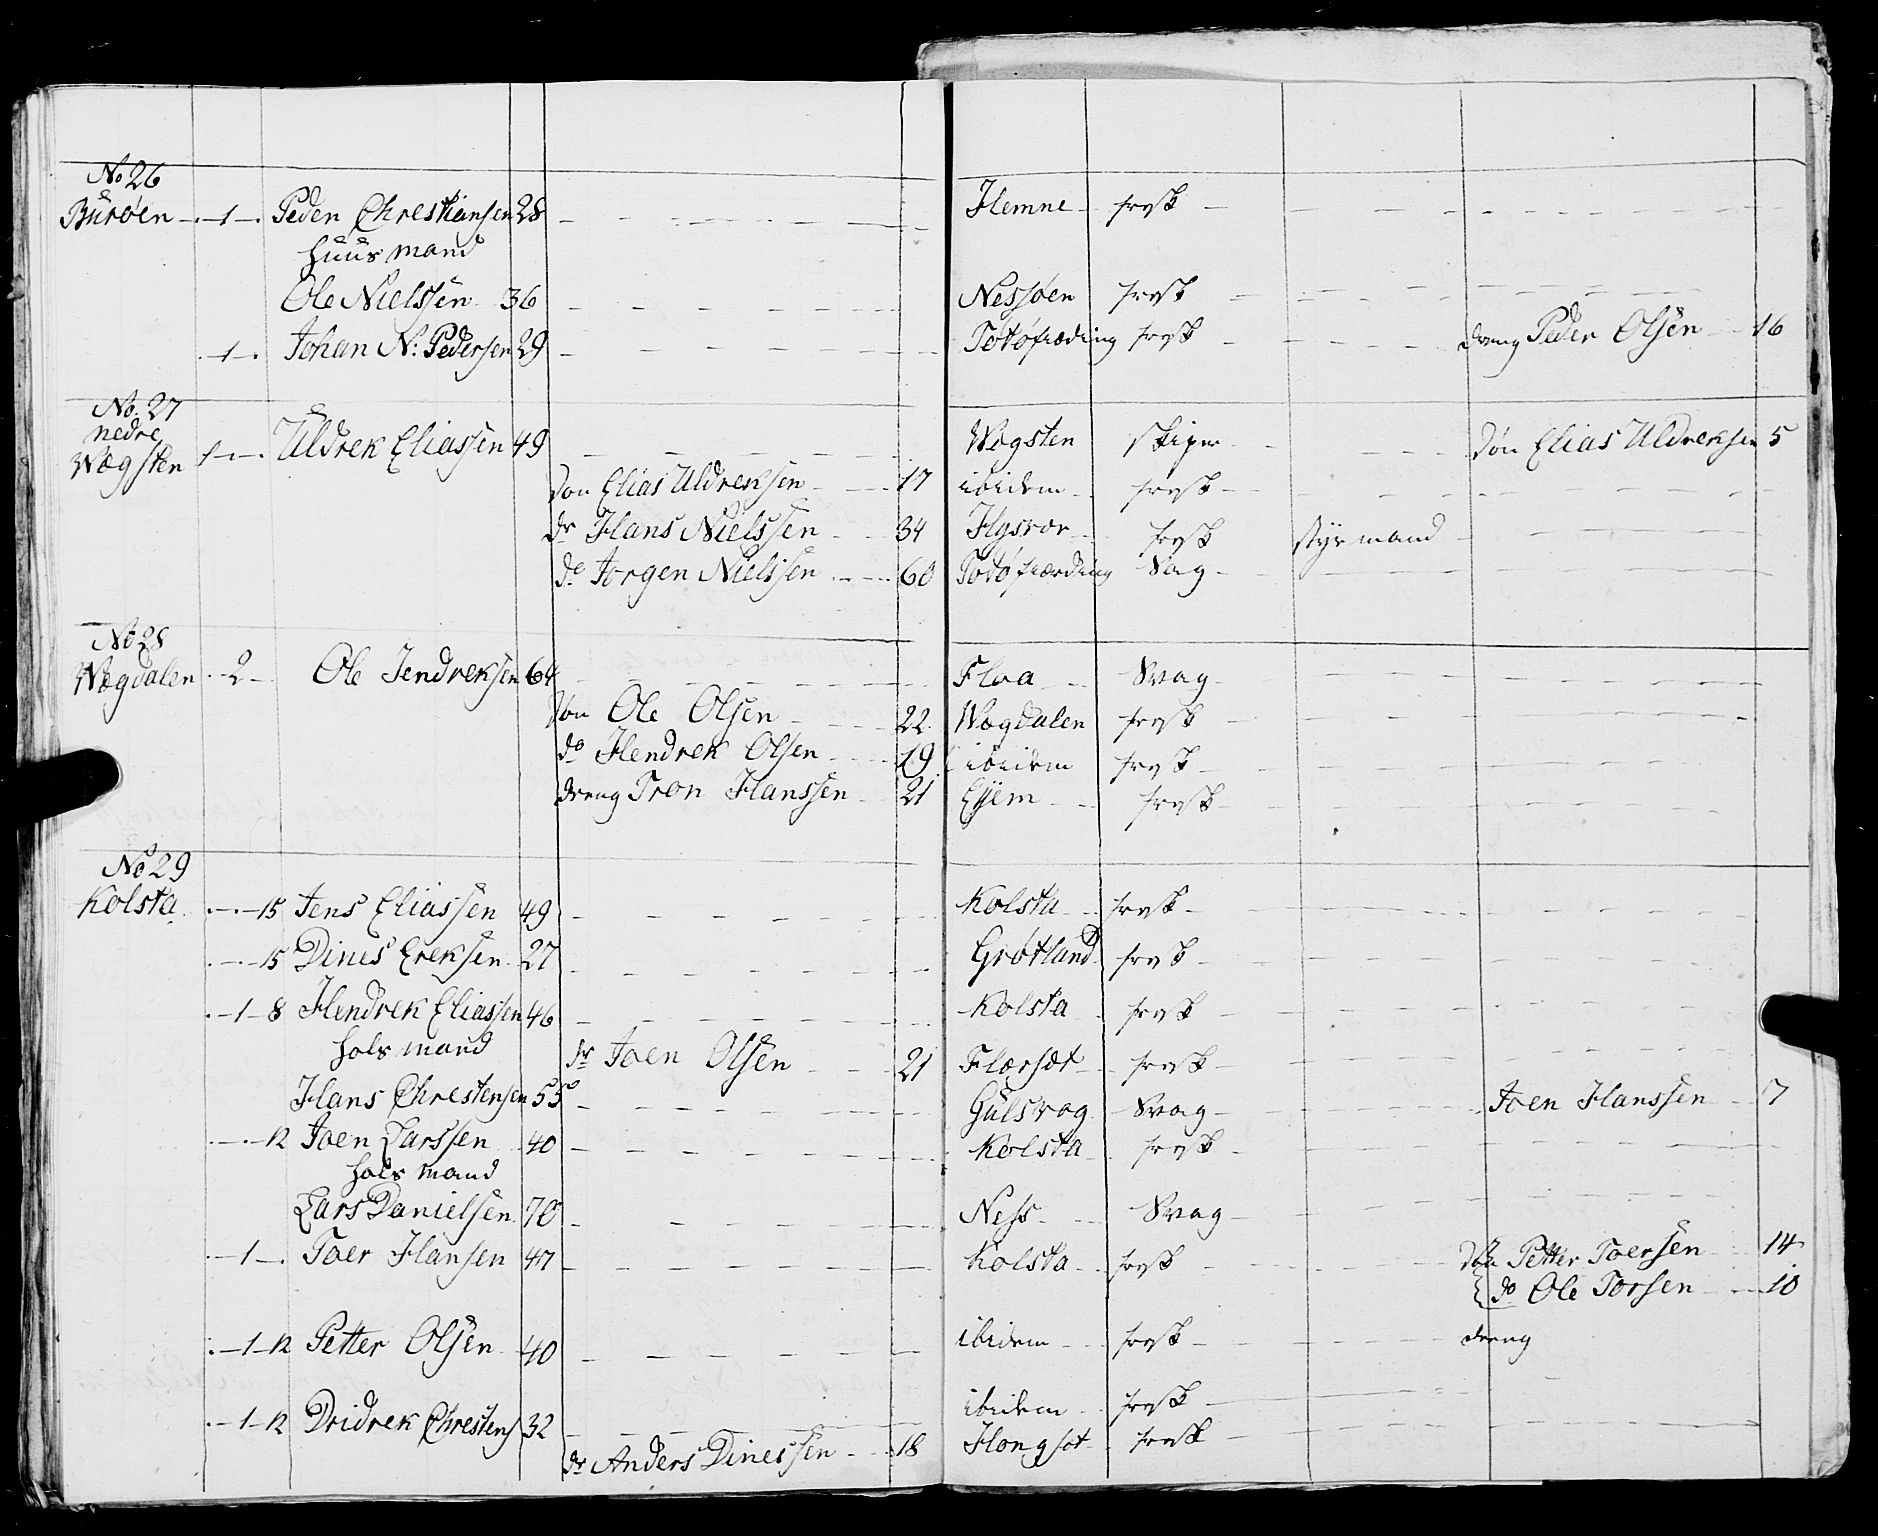 No 26
Burøen - 1 - Peder Chrestiansen 28 Hemne frisk
huus mand
Ole Nielssen 36 Nessøen frisk
1 Johan N: Pedersen 29 frisk dreng Peder Olsen 16
No. 27
nedre
Wægsten 1 Uldrek Eliassen 49 Wægsten skiper Søn Elias Uldreksen 5
Søn Elias Uldreksen 17 ibidem frisk
dr Hans Nielssen 34 frisk styrmand
do Jorgen Nielssen 60 Svag
No 28
Wægdalen 2 Ole Hendreksen 64 Floa Svag
Søn Ole Olsen 22 Wægdalen frisk
do Hendrek Olsen 19 ibidem frisk
dreng Tron Hanssen 21 frisk
No 29
Kolsta 15 Jens Eliassen 49 Kolsta frisk
15 Dines Ereksen 27 Grøtland frisk
1 - 8 Hendrek Eliassen 46 Kolsta frisk
hols mand
dr Joen Olsen 21 frisk
Hans Chrestensen 55 Svag Joen Hanssen 7
12 Joen Larssen 40 Kolsta frisk
hols mand
Lars Danielsen 70 Ness Svag
1 Toer Hansen 47 Kolsta frisk Søn Petter Toersen 14
do Ole Torsen 10
1 - 12 Petter Olsen 40 ibidem frisk dreng
1 - 12 Dridrek Chrestens 32 ibidem frisk
dr Anders Dinessen 18 frisk